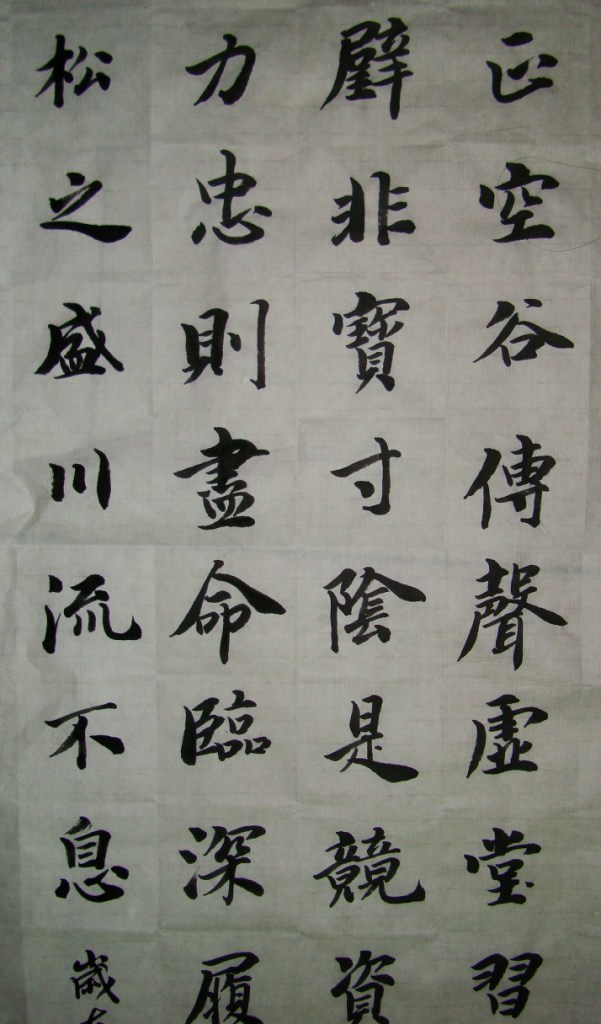 正空谷傳聲虛堂習
璧非寶寸陰是競資
力忠則盡命臨深履
松之盛川流不息歲